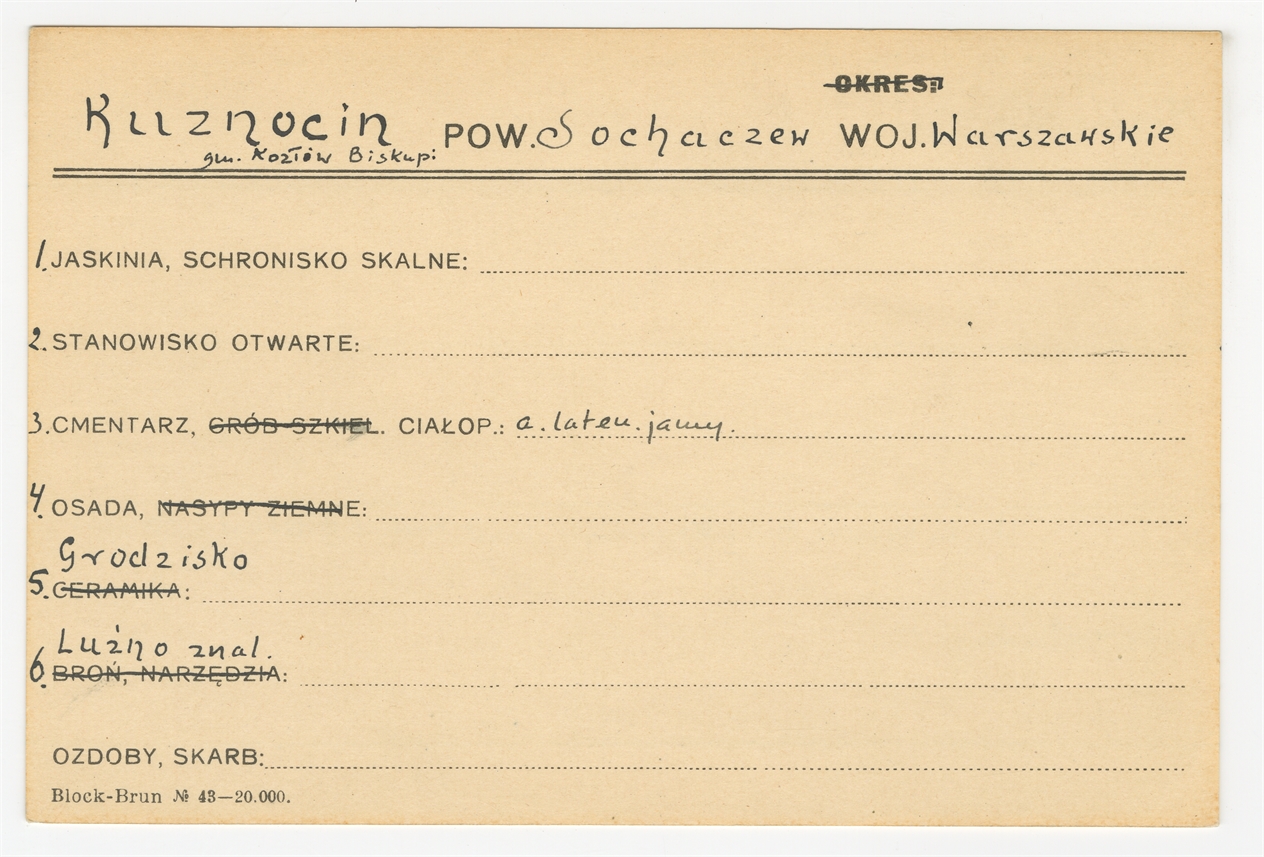 OKRES:
Kuznocin POW. Sochaczew WOJ. Warszawskie
gm. Kozłów Biskupi
1. JASKINIA, SCHRONISKO SKALNE:
2. STANOWISKO OTWARTE:
3. CMENTARZ, GRÓB SZKIEL. CIAŁOP.: a. lateu. jamy.
4. OSADA, NASYPY ZIEMNE:
Grodzisko
5. CERAMIKA:
Luźno znal.
6. BROŃ, NARZĘDZIA:
OZDOBY, SKARB:
Block-Brun № 43—20.000.